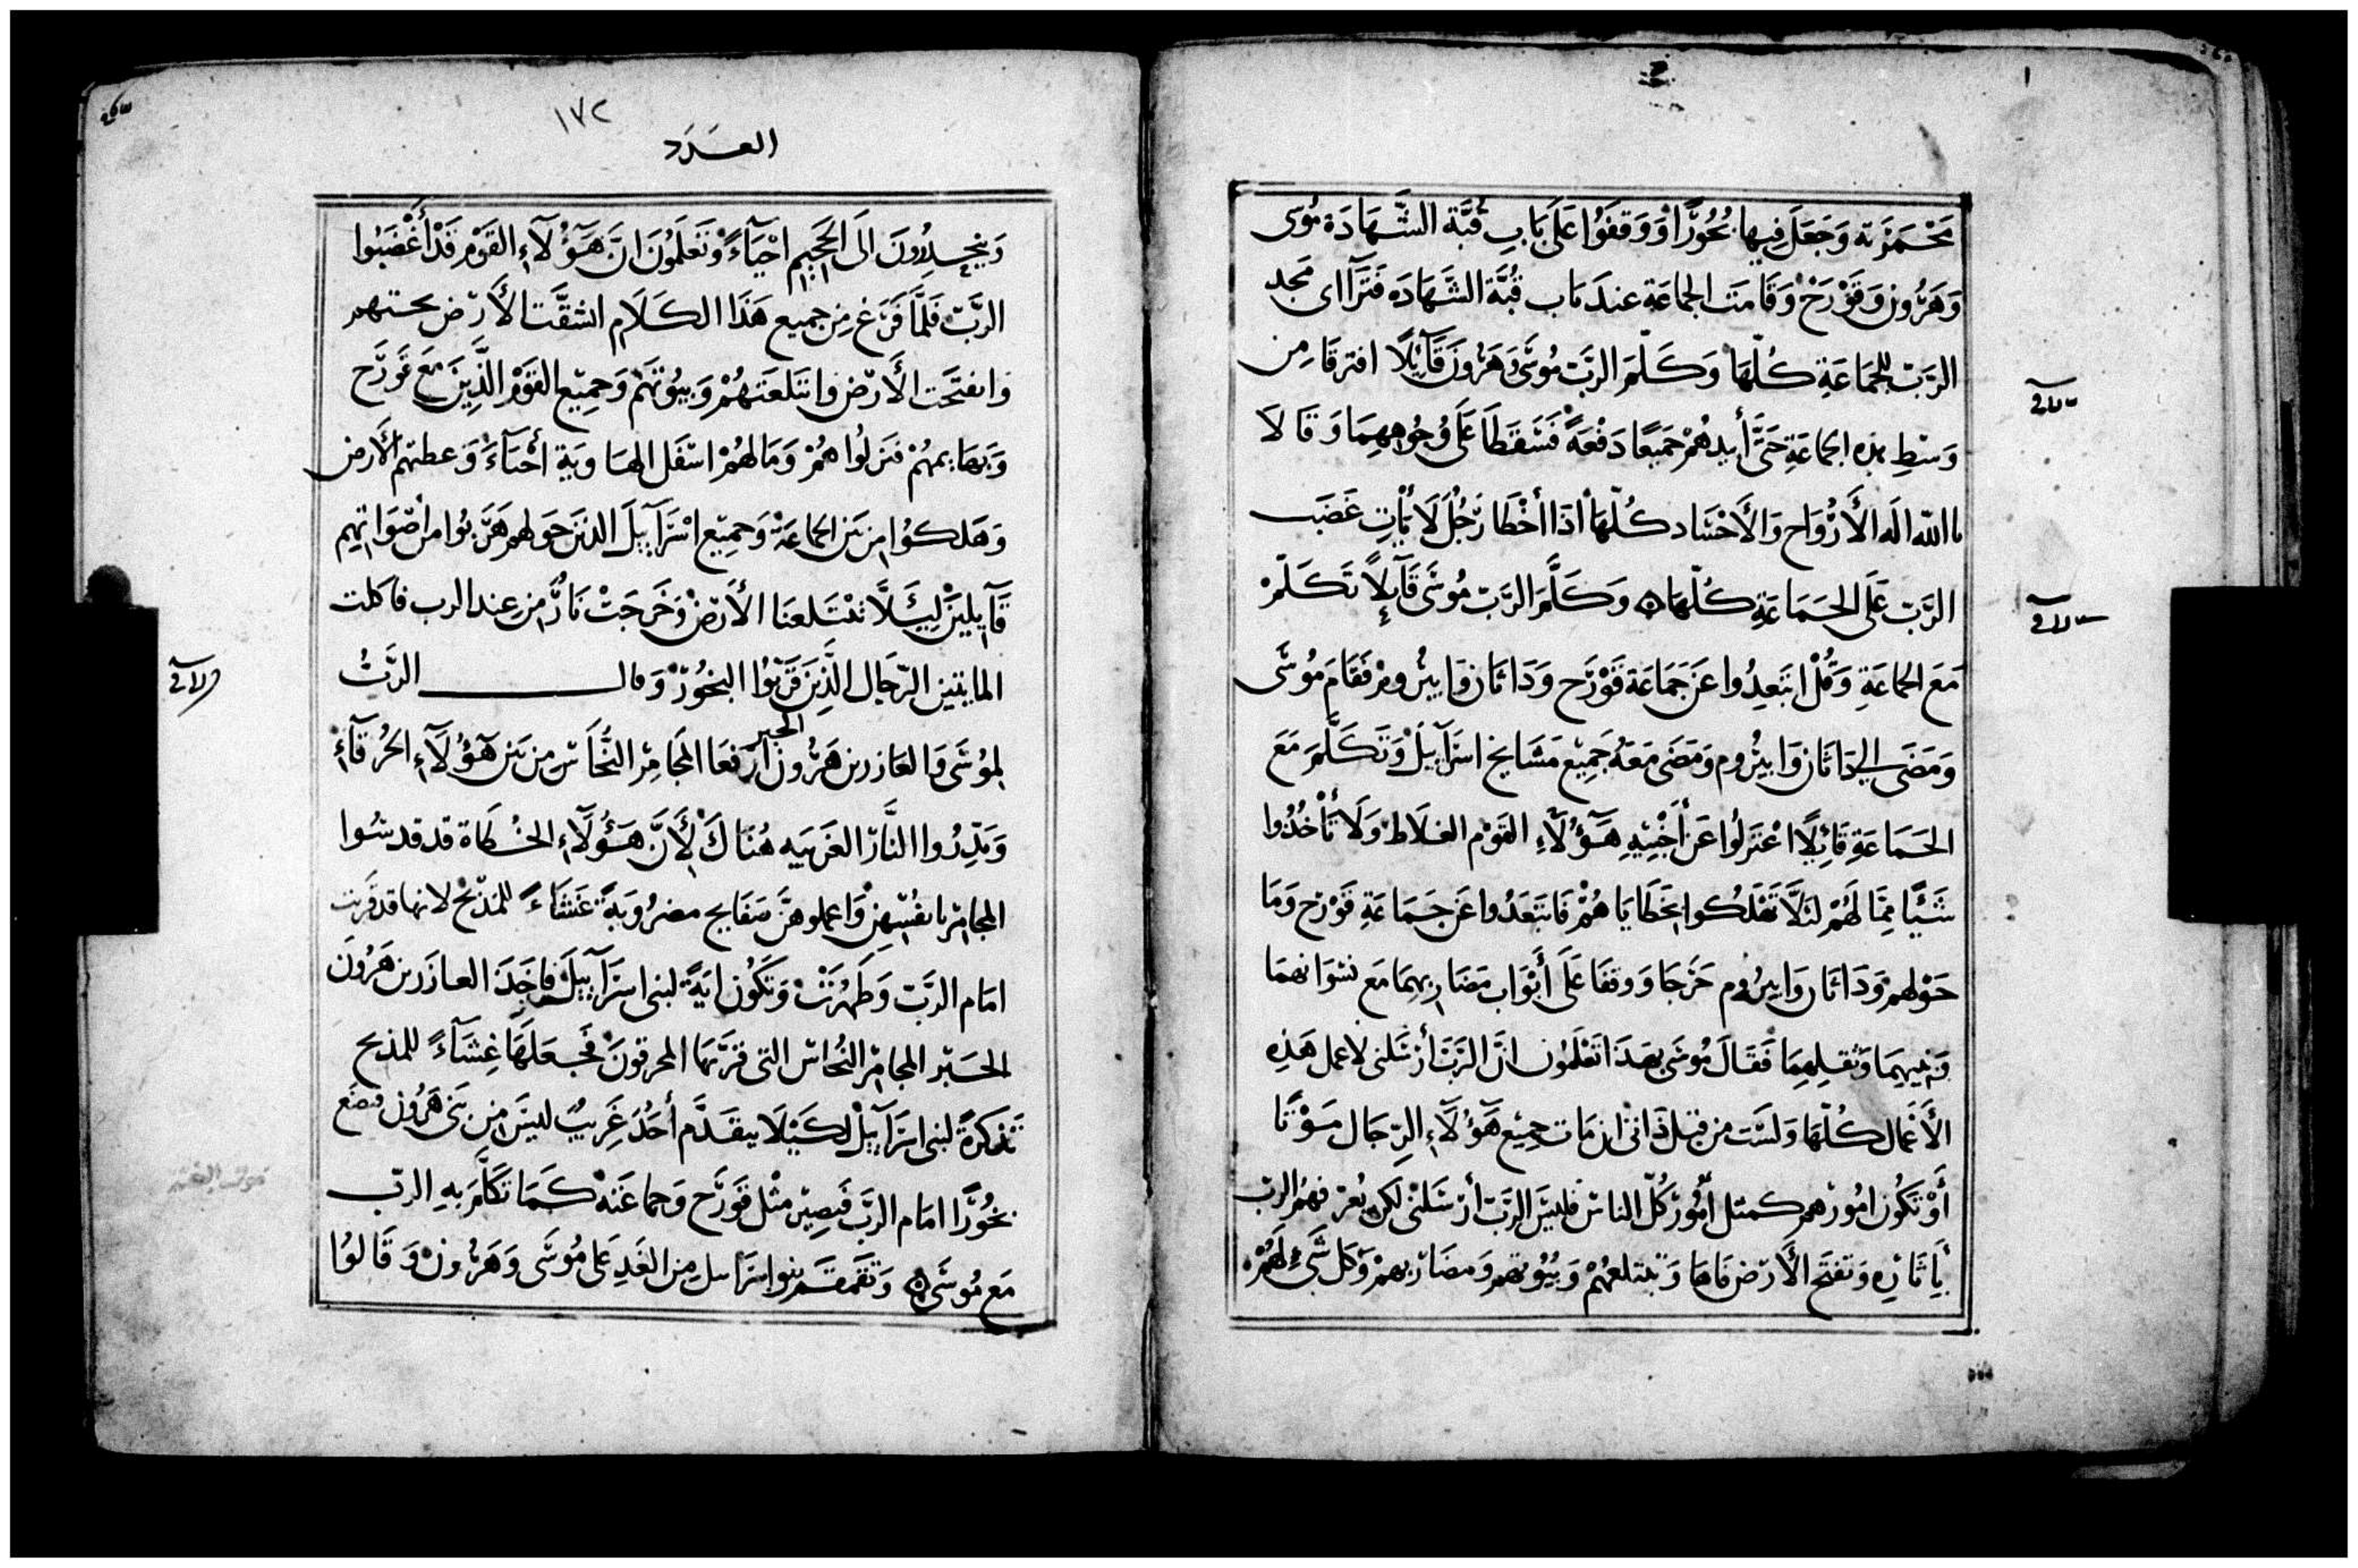 مَجْمَرَته وَجَعَلَ فِيهَا بُخُورًا وَوَقَفَوُا عَلَى بَابِ قُبَّة الشَّهَادَة مُوسَى
وَهَرُون وَقَوْرَحْ وَقَامَتِ الجمَاعَة عندَ بَاب قُبَّة الشَّهَادَه فَتَرَآاى مَجد
الرَّبّ للجمَاعَةِ كُلّهَا وَكَلَّمَ الرَّبّ مُوسَى وَهَرُونَ قَآيِلًا افترقَا مِن
وَسْطِ هذه الجماعَةِ حَتَّى أُبيدهُمْ جَميعًا دَفْعَةً فَسَقَطَا عَلَى وُجُوهِهِمَا وَقَالا
ياالله الَه الأَرْوَاح وَالأَجْسَاد كُلّهَا اذَا أخْطَا رَجُلٌ لَا يَأْتِ غَضَب
الرَّبّ عَلَى الجَمَاعَةِ كُلّهَا ۞ وَكَلَّمَ الرَّبّ مُوسَى قَآيِلاً تَكَلّمْ
مَعَ الجماعَةِ وَقُلْ ابتَعِدُوا عَن جَمَاعَة قَوْرَح وَدَاثَان وَابيرُومْ فَقَامَ مُوسَى
وَمَضَى الى دَاثَان وَابيرُوم وَمَضَى مَعَهُ جَمِيْع مَشَايخ اسرَآيِيلَ وَتَكَلَّمَ مَعَ
الجَمَاعَةِ قَائِلًا اعْتَزِلُوا عَن أَخْبِيَةِ هَؤُلَآءِ القَوْم الغلَاظ وَلَا تَأْخُذُوا
شَيًْا مِمَّا لَهُمْ لئَلَّا تَهْلِكُوا بخَطَايَا هُمْ فَابتَعَدُوا عَن جَمَاعَةِ قَوْرَح وَمَا
حَوْلهمْ وَدَاثَان وَابيرُوم خَرَجَا وَوقفَا عَلَى أَبْوَاب مَضَارِبهِمَا مَع نسْوَانهمَا
وَبَنيهِمَا وَثقلِهمَا فَقَالَ مُوسَى بهَذَا تَعْلَمُون انَّ الرَّبّ أرْسَلنى لاعمل هَذِه
الأَعْمَال كُلّهَا وَلَسْت من قبل ذَاتى ان مَات جميْع هَؤُلَآءِ الرِّجَال مَوْتًا
أَوْ تَكُون امُورُهم كمثل أُمُورْ كُلّ الناسْ فليسَ الرَّبّ أرْسَلنى لَكن يُعرّفهمُ الربّ
بأِثَارِه وَتفتَح الأَرْض فَاهَا وَتبتلعهُمْ وَبُيُوتهم وَمضَارْبهمْ وَكل شَىْءٍ لَهُمْ
١٧٢
العَدَد
وَينحدِرُونَ الَى الجَحِيم احْيَآءً وَتَعلَمُونَ انَّ هَؤُلَآءِ القَوْم قَدْ أَغْضَبُوا
الرَّبّ فَلَمَّا فَرَغ مِن جميع هَذَا الكَلَام انشقَّت الأَرْض تحتهم
وَانفتَحَت الأَرْض وَابتَلعَتهُمْ وَبيُوتهُمْ وَجميْع القَوْم الَّذِينَ مَعَ قَوْرَح
وَبهَايمهُمْ فنَزلُوا هُمْ وَمَا لهُمْ اسْفَل الهَاويَة أحْيَآءً وَغطتهمُ الأَرض
وَهَلكُوا من بَين الجماعَةْ وَجميْع اسْرَآيِيلَ الذينَ حَولهم هَرَبوُا من أصْوَاتهِم
قَآيِلينْ لِيَلَّا تبْتَلعنَا الأَرضْ وَخَرَجَتْ نَارٌ مِن عِند الرب فاكلت
المايتين الرّجَال الَّذِينَ قَرَّبوُا البخوُرْ وَقال الرَّبُّ
لمُوسَى وَالعَازر بن هَرُون الحبر ارْفعَا المجَامِرْ النُّحَاسْ من بَين هَؤُلَآءِ الحُرَقَآء
وَبَدِّرُوا النَّارَ الغَريبَه هُنَاكَ لأَنَّ هَؤُلَآءِ الخُطَاة قد قدسُوا
المجَامرْ بانفسْهِنْ وَاعملوهنَّ صَفَايح مضرُوبَةً غشَاءً للمَذْبَحْ لانها قد قربت
امَام الرَّبّ وَطَهُرَتْ وَتَكُون ايَةً لبنى اسرَآيِيلَ فاخَذَ العازَر بن هَرُونَ
الحَبْر المجَامِرْ النُحاسْ التى قرَّبهَا المحرقونَ فجعَلَهَا غِشَآءً للمذبح
تَذْكرَةً لبنى اسرَآيِيلْ لكَيْلَا يتقَدَّم أَحَدٌ غَرِيبٌ ليسَ من بَنى هَرُون فيضَع
بخُورًا امَام الرَّبّ فَيَصِيْر مثْل قَوْرَح وَجماعَتهْ كَمَا تَكَلَّمَ بِهِ الربّ
مَع مُوسَى ۞ وَتقَمقَم بنوا سرَايل مِن الغَدِ عَلى مُوسَى وَهَرُون وَقَالوُا